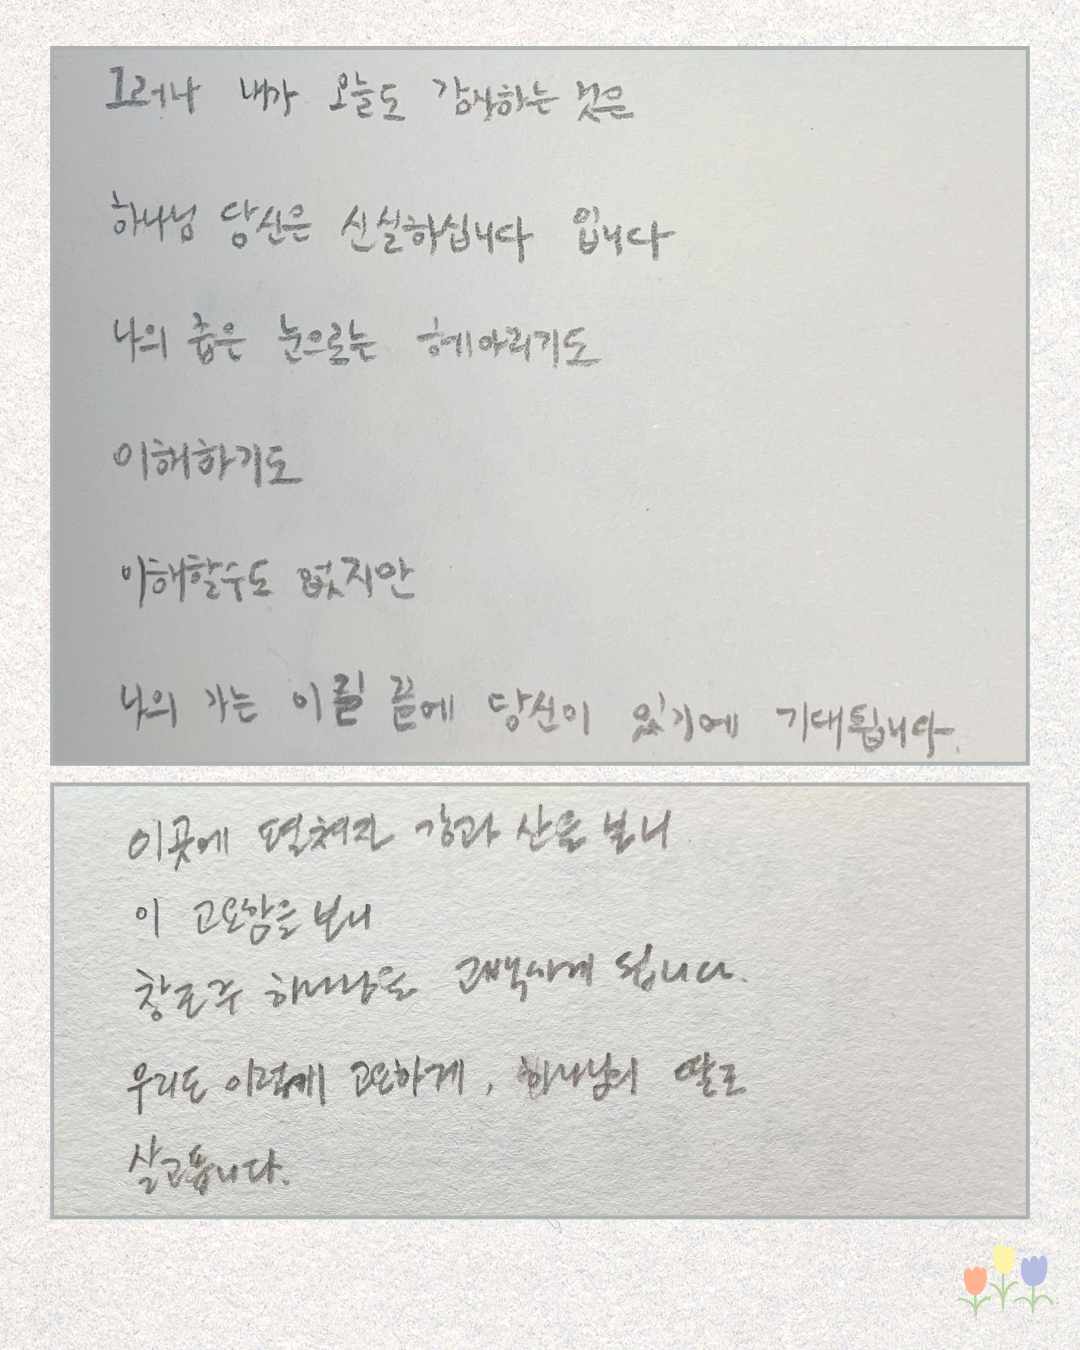 그러나 내가 오늘도 감사하는 것은
하나님 당신은 신실하십니다 입니다
나의 좁은 눈으로는 헤아리기도
이해하기도
이해할수도 없지만
나의 가는 이 길 끝에 당신이 있기에 기대됩니다.
이곳에 펼쳐진 강과 산을 보니
이 고요함을 보니
창조주 하나님을 고백하게 됩니다.
우리도 이렇게 고요하게, 하나님의 딸로
살고픕니다.